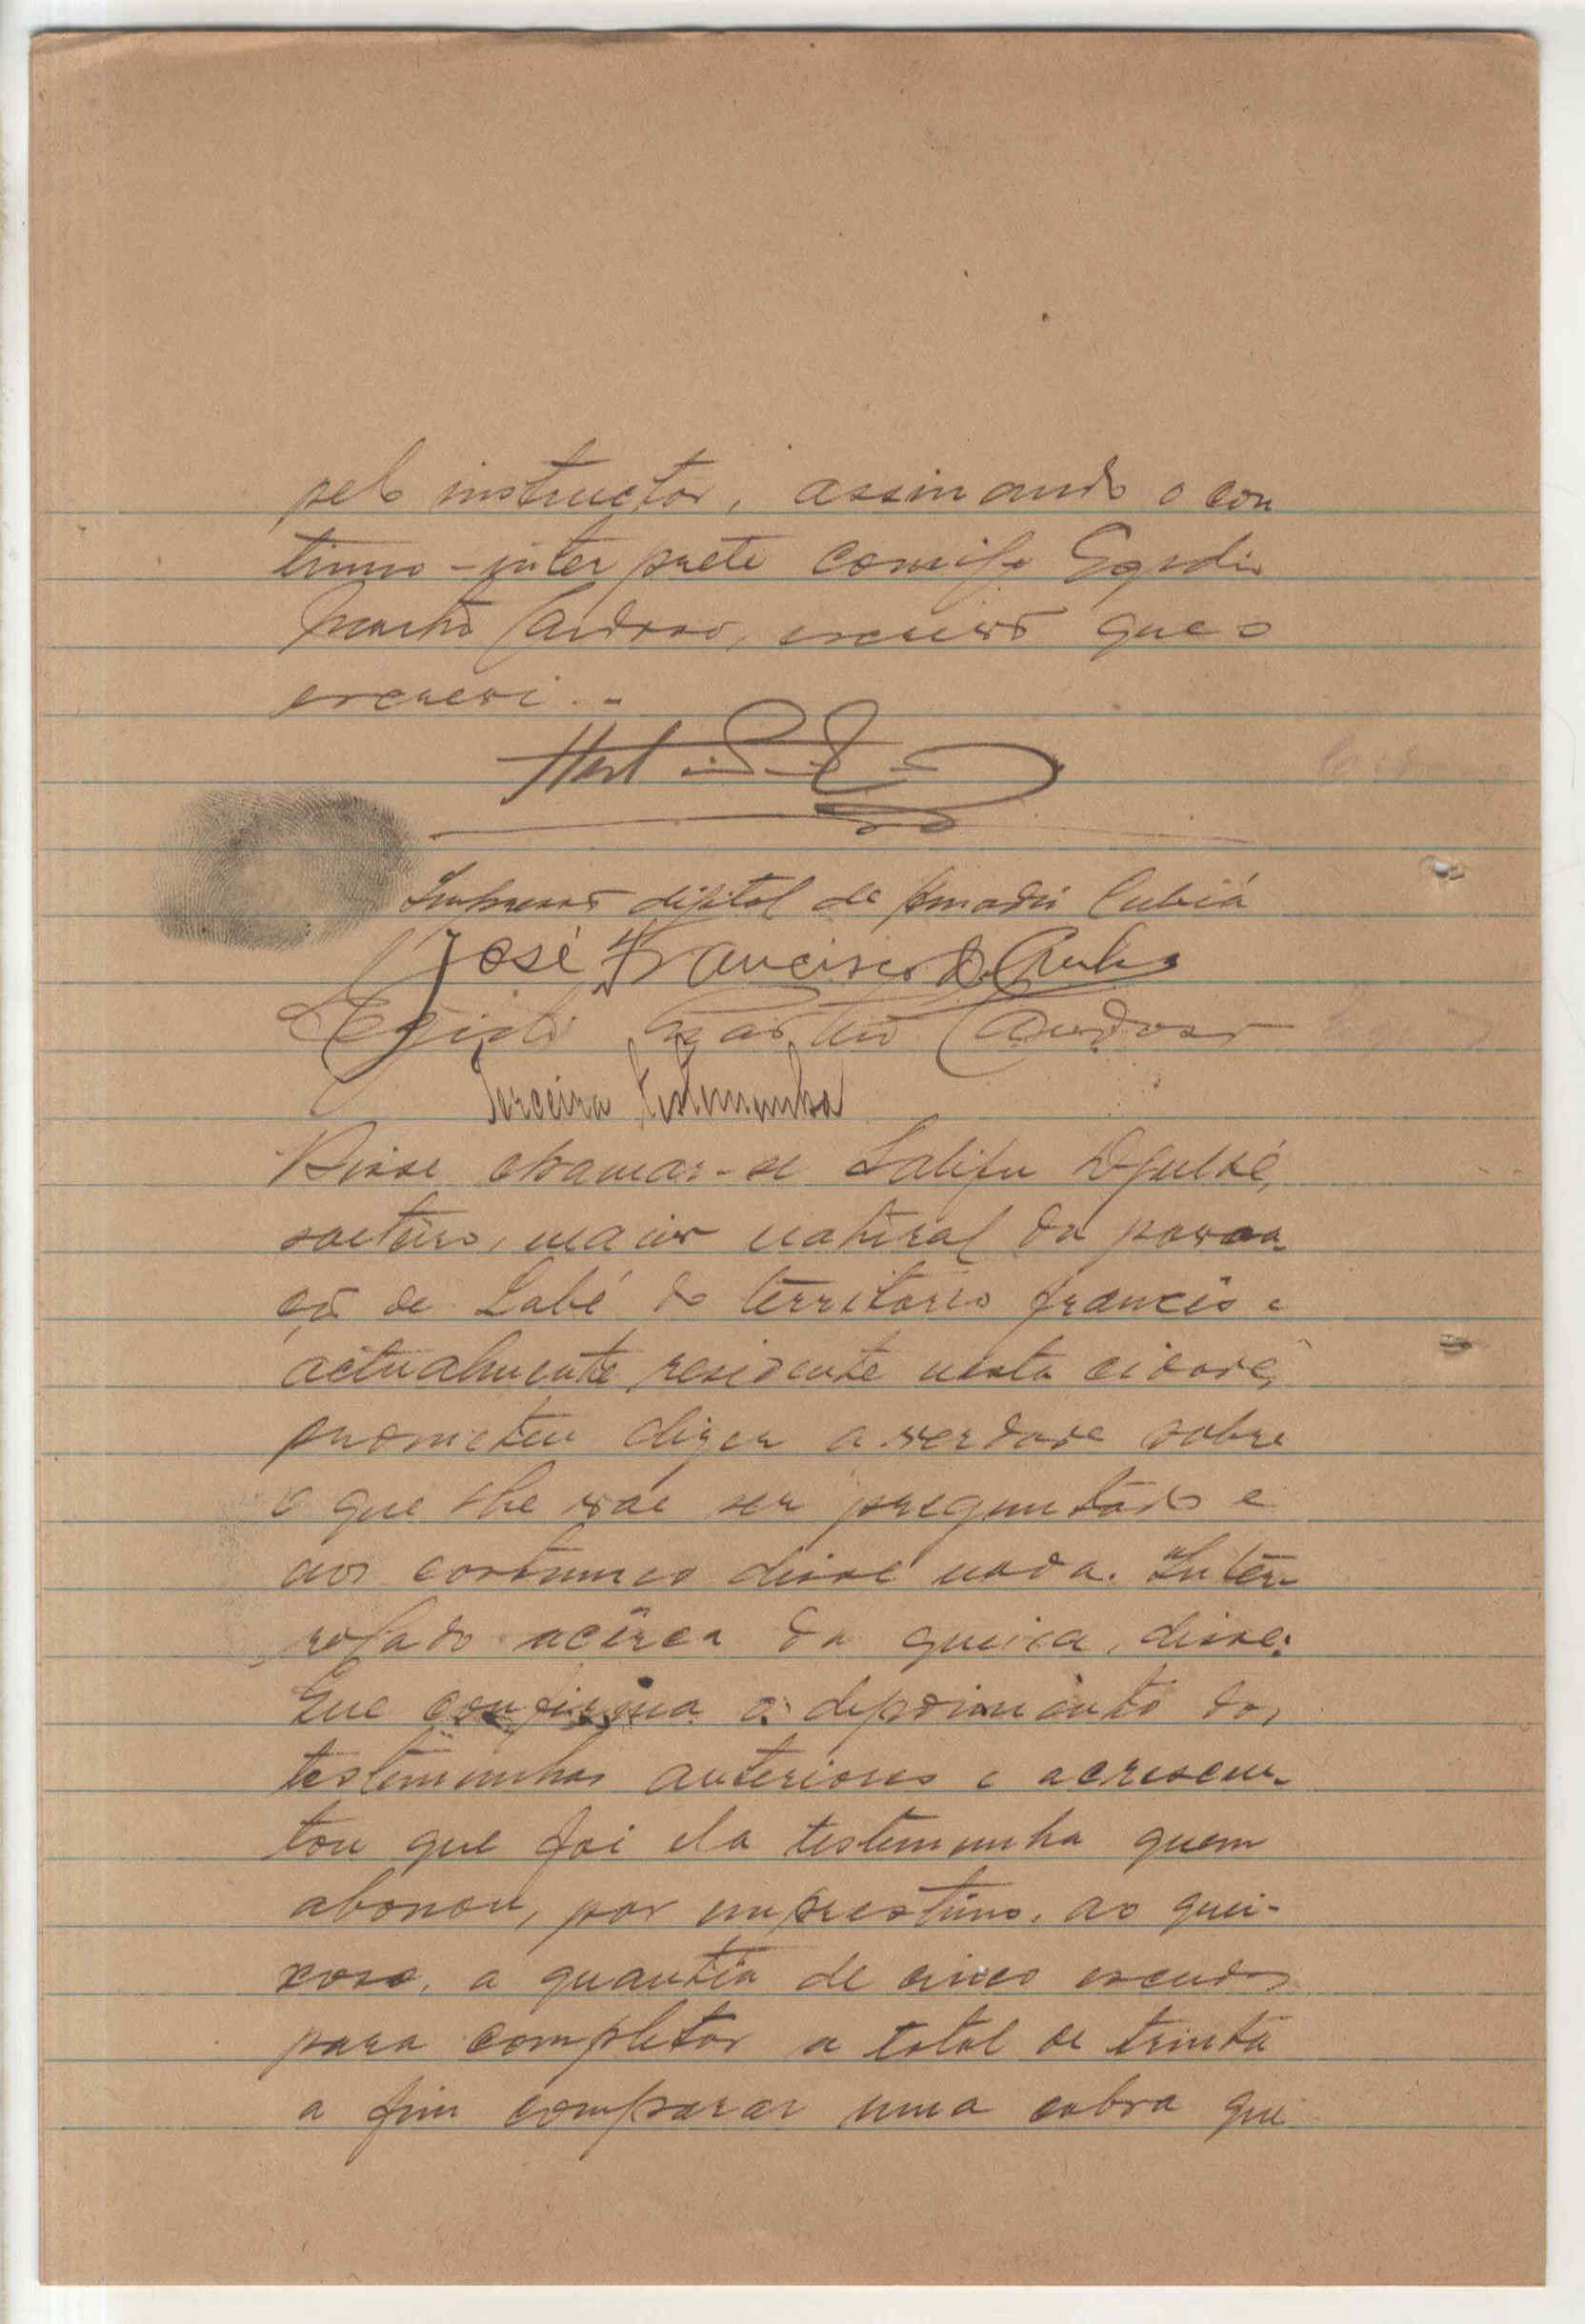 pelo instructor, assinando o con
tinuo-interprete comigo Egidio
Martins Cardoso, escrivão que o
escrevi. -
Impressão digital de Amadú Cubiá
José Francisco da Cunha
Egidio Martins Cardoso
Terceira testemunha
Disse chamar-se Salifu Djulbé,
solteiro, maior natural da povoa-
ção de Labé do territorio francês e
actualmente residente nesta cidade,
prometeu dizer a verdade sobre
o que lhe vae ser preguntado e
aos costumes disse nada. Inter-
rogado acêrca da queixa, disse:
Que confirma o depoimento das
testemunhas anteriores e acrescen-
tou que foi ela testemunha quem
abonou, por emprestimo, ao quei-
xoso, a quantia de cinco escudos
para completar a total de trinta
a fim comparar uma cabra que